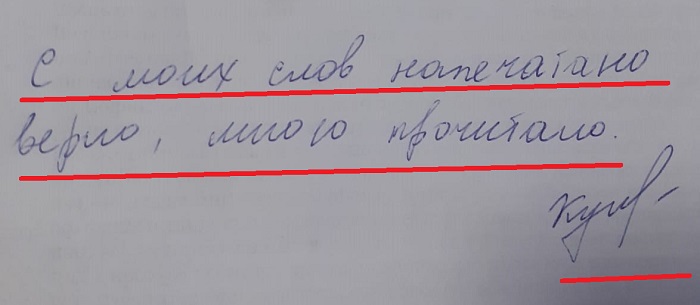 С моих слов напечатано
верно, мною прочитано.